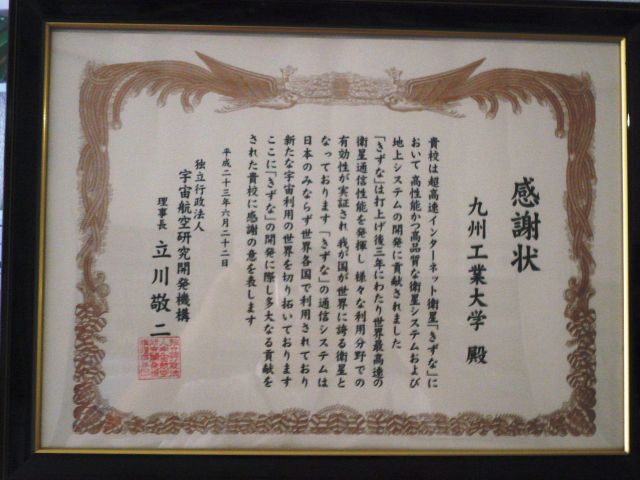 感謝状
九州工業大学 殿
貴校は超高速インターネット衛星「きずな」に
おいて 高性能かつ高品質な衛星システムおよび
地上システムの開発に貢献されました
「きずな」は打上げ後三年にわたり世界最高速の
衛星通信性能を発揮し 様々な利用分野での
有効性が実証され 我が国が世界に誇る衛星と
なっております 「きずな」の通信システムは
日本のみならず世界各国で利用されており
新たな宇宙利用の世界を切り拓いております
ここに「きずな」の開発に際し多大なる貢献を
された貴校に感謝の意を表します
平成二十三年六月二十二日
独立行政法人
宇宙航空研究開発機構
理事長 立川敬二